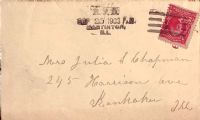 P.M.
ILL.
Mrs Julia A Chapman
245 Harrison Ave
Kankakee
Ill